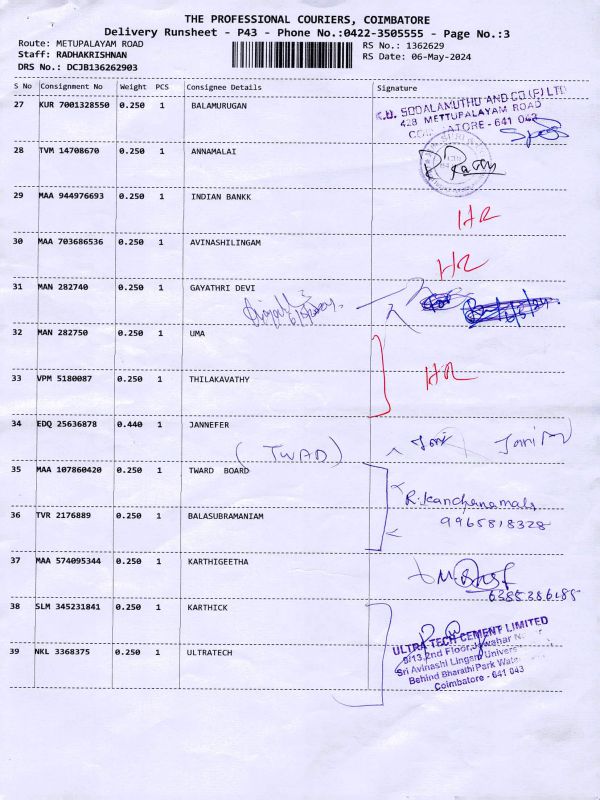 THE PROFESSIONAL COURIERS, COIMBATORE
Delivery Runsheet - P43 - Phone No.:0422-3505555 - Page No.:3
Route: METUPALAYAM ROAD
Staff: RADHAKRISHNAN
DRS No.: DCJB136262903
RS No.: 1362629
RS Date: 06-May-2024
S No Consignment No Weight PCS Consignee Details Signature
27 KUR 7001328550 0.250 1 BALAMURUGAN
SODALAMUTHU AND CO (P) LTD
428 METTUPALAYAM ROAD
28 TVM 14708670 0.250 1 ANNAMALAI
29 MAA 944976693 0.250 1 INDIAN BANKK
HR
30 MAA 703686536 0.250 1 AVINASHILINGAM
HR
31 MAN 282740 0.250 1 GAYATHRI DEVI
32 MAN 282750 0.250 1 UMA
33 VPM 5180087 0.250 1 THILAKAVATHY
HR
34 EDQ 25636878 0.440 1 JANNEFER
(TWAD)
35 MAA 107860420 0.250 1 TWARD BOARD
R. Kanchanamala
9965818328
36 TVR 2176889 0.250 1 BALASUBRAMANIAM
37 MAA 574095344 0.250 1 KARTHIGEETHA
38 SLM 345231841 0.250 1 KARTHICK
39 NKL 3368375 0.250 1 ULTRATECH
ULTRA TECH CEMENT LIMITED
2nd Floor, Jawahar
Sri Avinashi Lingam
Behind Bharathi Park
Coimbatore - 641 043